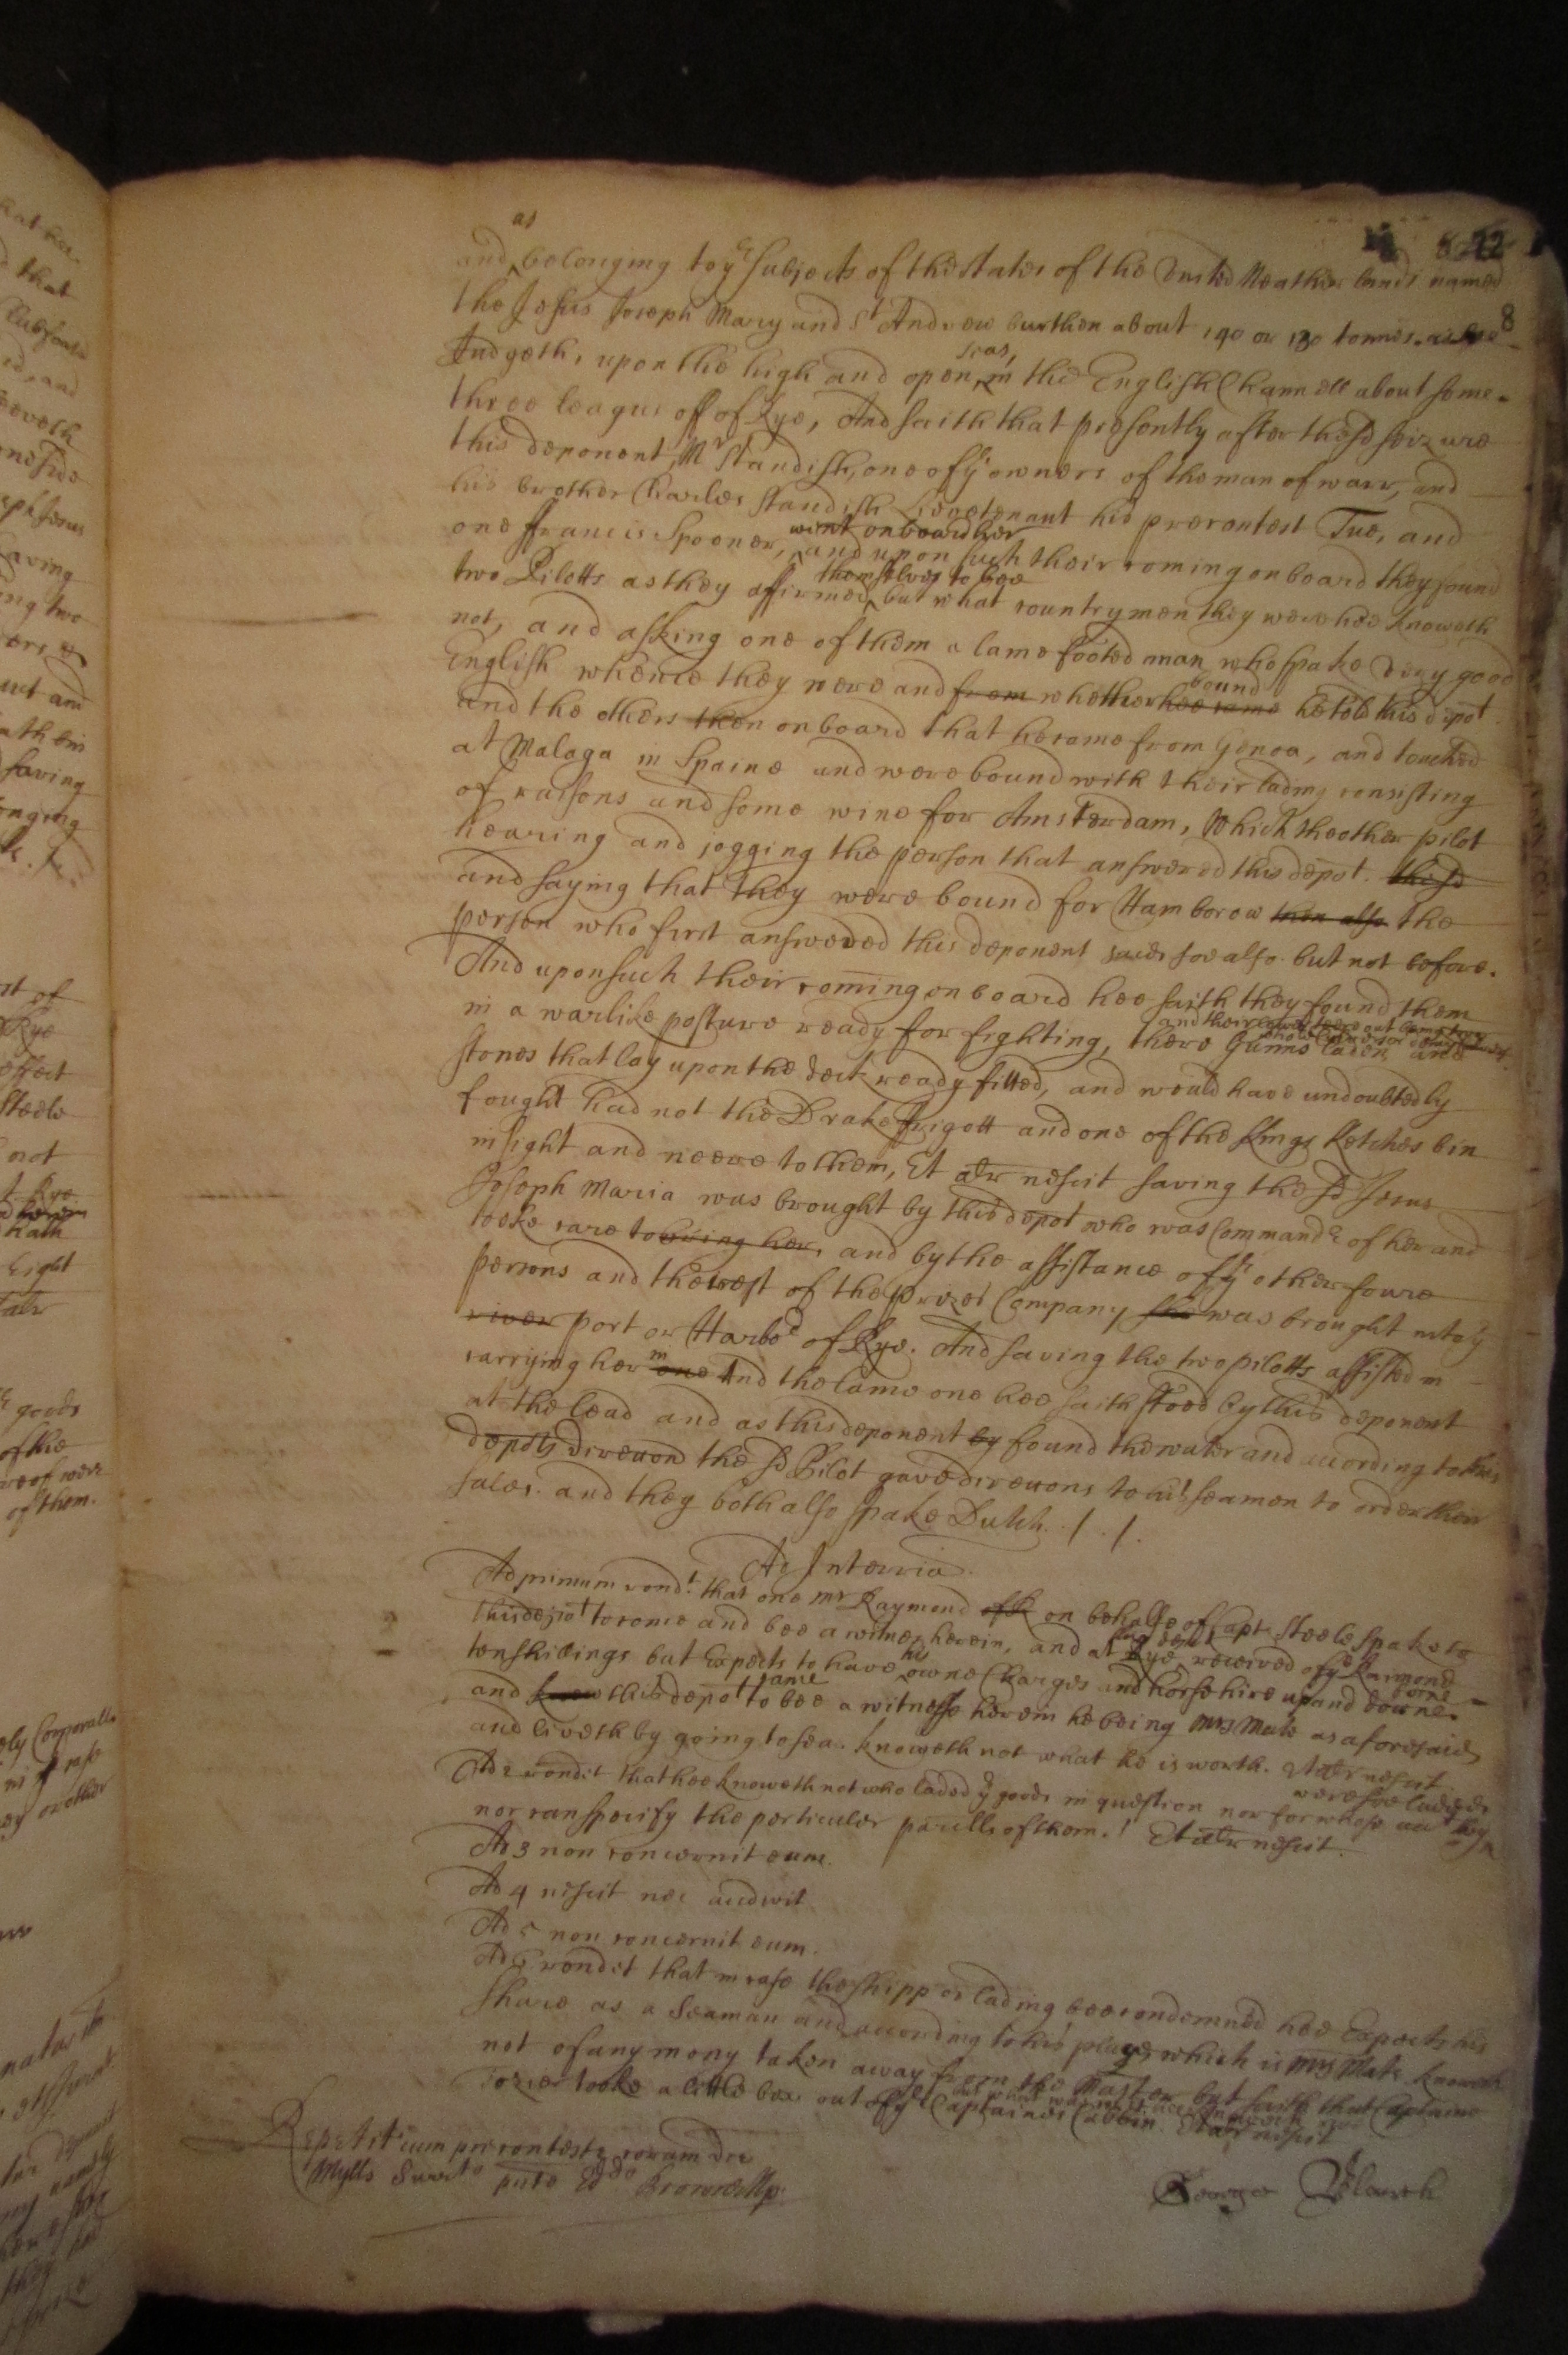 as
and belonging to ye subjects of the states of the United Neather lands named
8
the Jesus Joseph Mary and St Andrew burthen about 140 or 130 tonnes. as hee
seas,
Judgeth, upon the high and open in the English Channell about some
three leagues off of Rye, And saith that presently after the sd seizure
this deponent, Mr Standish, one of ye owners of the man of warr, and
his brother Charles Standish Lievetenant his precontest Tue, and
went on board her
one Francis Spooner, and upon such their coming on board they found
themselves to bee
two Pilotts as they affirmed but what countrymen they were hee knoweth
not, and asking one of them a lame footed man who spake very good
bound
English whence they were and from whether hee came he told this depot
and the others then on board that he came from Genoa, and touched
at Malaga in Spaine and were bound with their lading consisting
of raisons and some wine for Amsterdam, Which the other pilot
hearing and jogging the person that answered this depot. the sd
and saying that they were bound for Hamborow then also the
person who first answered this deponent saies soe also but not before.
And upon such their coming on board hee saith they found them
and their
in a warlike posture ready for fighting, there Gunns laden, and
stones that lay upon the deck ready fitted, and would have undoubtedly
fought had not the Drake ffrigott and one of the Kings Ketches bin
in sight and neere to them, Et altr nescit saving the sd Jesus
Joseph Maria was brought by this depot who was Commandr of her and
tooke care to bring her, and by the assistance of ye other foure
persons and the rest of the prizes Company she was brought into ye
river port or Harbor of Rye. And saving the two pilotts assisted in
in
carrying her one And the lame one hee saith stood by this deponent
at the lead and as this deponent by found the water and according to this
depots direcons the sd Pilot gave direcons to his seamen to order their
sales. and they both also spake Dutch. /. /.
Ad Interria.
Ad primum rondt. that one Mr Raymond of k on behalfe of Capt. Steele spake to
this depot to come and bee a witnes herein, and at Rye received of ye Raimond
his
ten shillings but Expects to have owne Charges and horse hire up and downe.
came
and knew this depot to bee a witnesse herein he being Mrs Mate as aforesaid
and liveth by going to sea. knoweth not what he is worth. Et altr nescit.
Ad 2 rondet that hee knoweth not who laded ye goods in question nor for whose acct they
were soe laded
nor can specify the perticuler parcells of them. Et altr nescit.
Ad 3 non concernit eum.
Ad 4 nescit nec audivit
Ad 5 non concernit eum.
Ad 6 rondet that in case the shipp or lading bee condemned hee Expects his
share as a Seaman and according to his place which is Mrs Mate knoweth
not of any mony taken away from the Master but saith that Captaine
Tozier tooke a little box out of ye Captaines Cabbin. Et altr nescit
Repetit cum precontest coram dre
Mylls Surrto pnte Edo Brownells
George Blanch